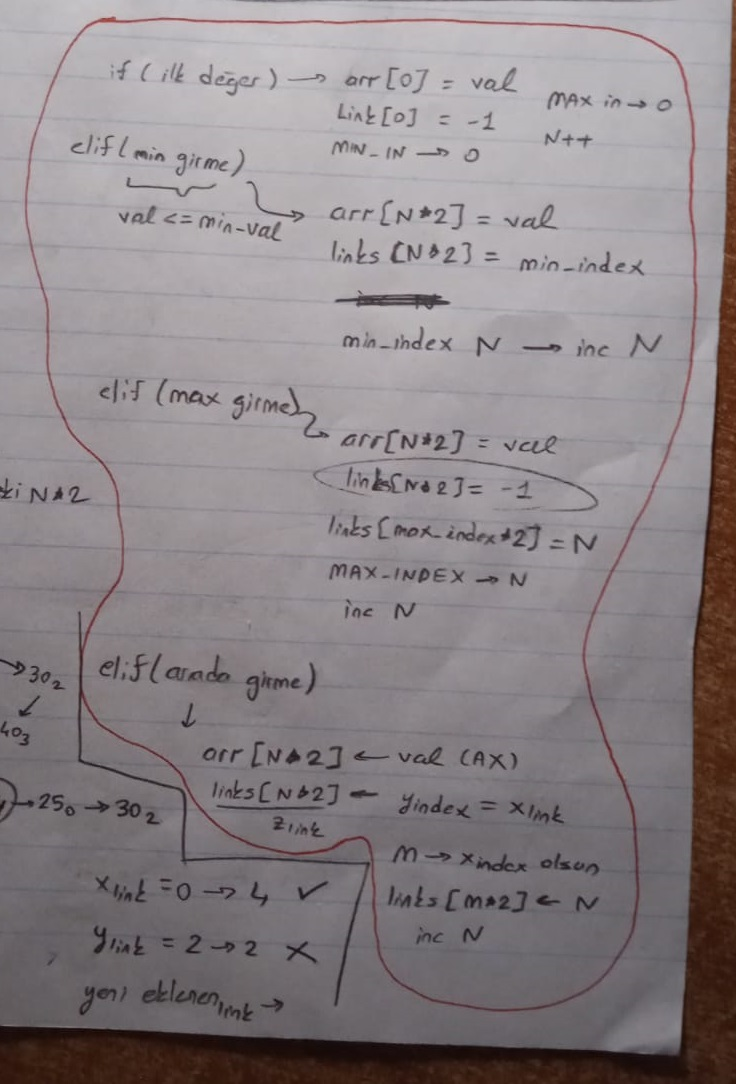 if (ilk değer) → arr[0] = val
Link[0] = -1
MIN_IN → 0
MAX in → 0
N++
elif (min girme)
val <= min-val
arr[N*2] = val
links[N*2] = min_index
min_index N → inc N
elif (max girme)
arr[N*2] = val
links[N*2] = -1
links[max_index*2] = N
MAX-INDEX → N
inc N
ki N*2
→ 30₂
↙
40₃
elif (arada girme)
↓
arr[N*2] ← val (AX)
links[N*2] ← yindex = xlink
zlink
→ 25₀ → 30₂
m → xindex olsun
links[m*2] ← N
inc N
xlink = 0 → 4 ✓
ylink = 2 → 2 ✗
yeni eklenen link →